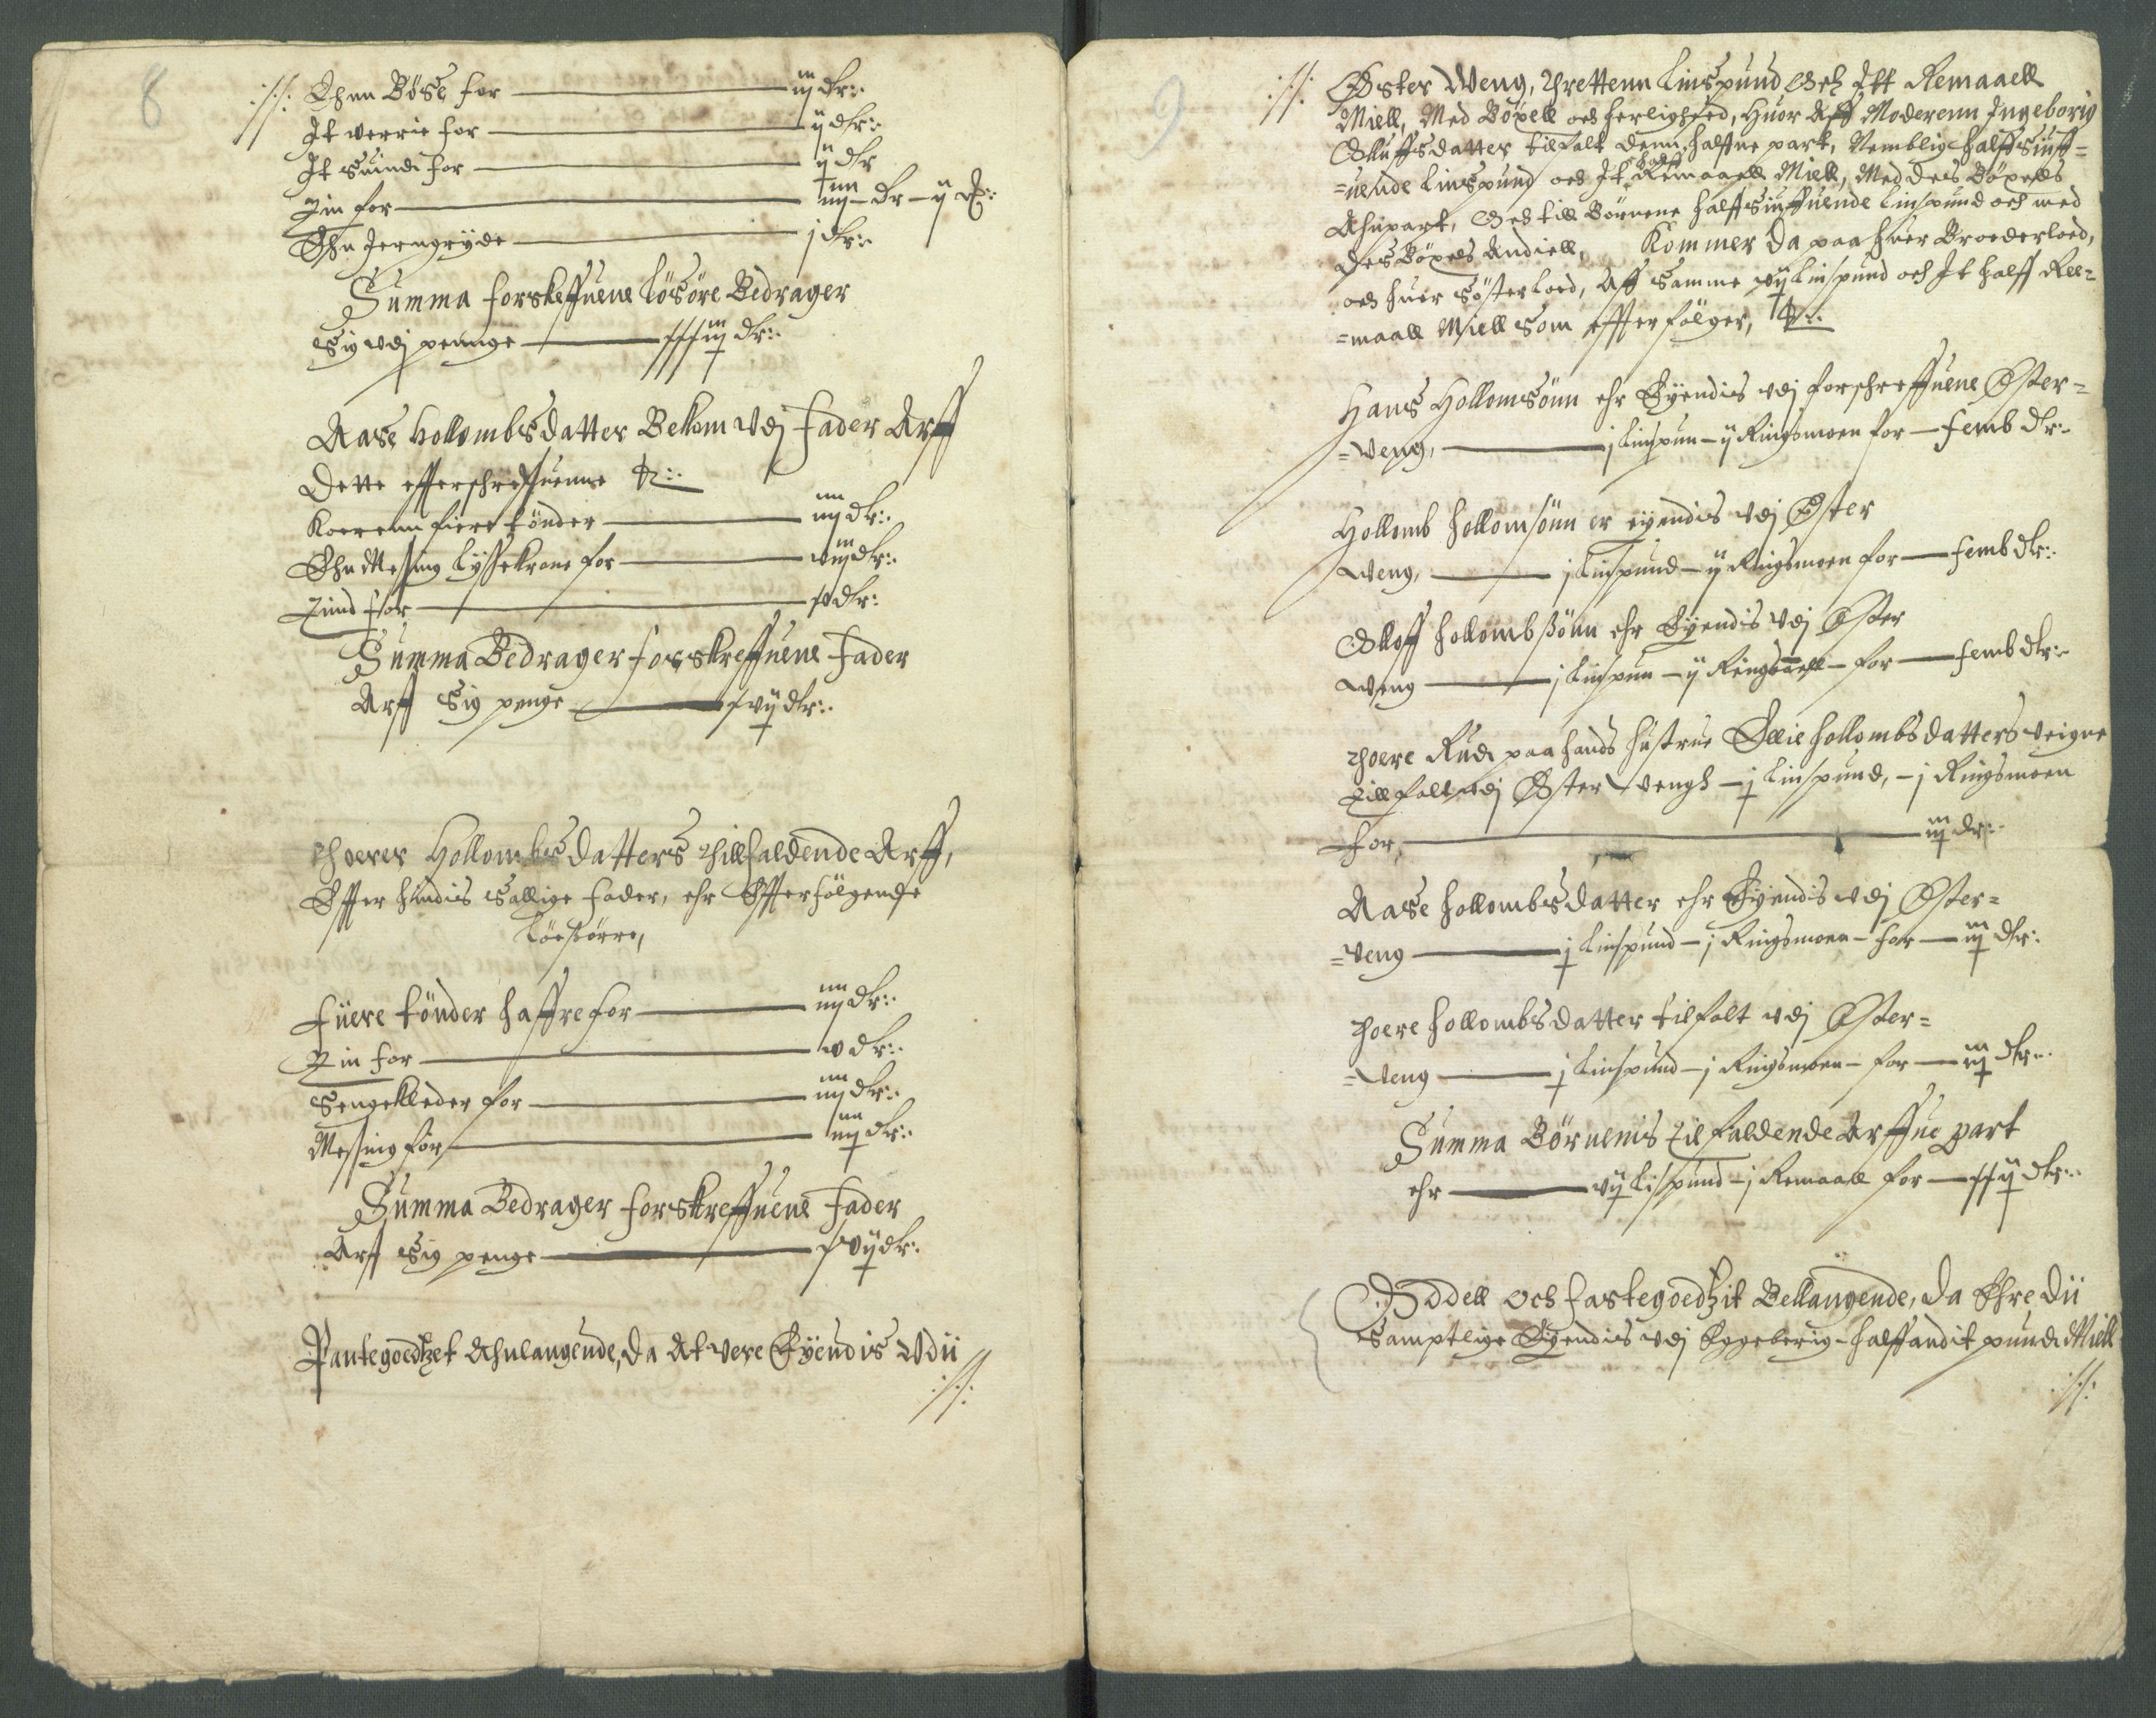 8
:/:/: Ehnn Bösse for — iij dlr:
It verrie for — ij dlr:
It suind for — ij dlr
Tin for — iiij dlr – ij
Ehn Jerngryde — j dlr:
Summa forskeffuene lösöre Bedrager
Sig vdj peninge — dlr:
Aase Hollombsdatter Bekom vdj Fader Arff
Dette effterschreffuenne &:
Koerenn fiere tönder — iiij dlr:
Ehn Messing Lyssekrone for — viij dlr:
Tind for — dlr:
Summa Bedrager forskreffuene Fader
Arff Sig penge — dlr:
Thorer Hollombsdatters thillfaldende Arff,
Effter hindis Sallige fader, ehr Effterfölgende
Löesörre,
Fiiere tönder haffre for — iiij dlr:
Tin for — v dlr:
Sengekleder for — iiij dlr:
Messing for — iiij dlr:
Summa Bedrager forskreffuene Fader
Arff Sig penge — dlr:
Pantegoedtzet Ahnlangende, da At vere Eyendis Udii
:/:/:
9
:/:/: Öster Weng, Threttenn Linspund Och Itt Remaaell
Miell, Med Böxell och herlighed, huor Aff Moderenn Ingeborig
Olluffsdatter tilfalt denn halffue part, Nemblig halffsiuff=
=uende Linspund och It halff Remaaell Miell, Med des Böxells
Ahnpart, Och till Börnene halffsiuffuende Linspund och med
des Böxels Andiell, Kommer da paa huer Broederloed,
och huer Sösterloed, Aff samme Linspund och It halff Ree=
=maall Miell som effterfölger, &:
Hans Hollomsönn ehr Eyendis vdj forschreffuene Öster=
=Weng, — j Linspun – ij Ringsmoen for — femb dlr:
Hollomb Hollomsönn er eyendis vdj Öster
Weng, — j Linspund – ij Ringsmoen for — femb dlr:
Olloff Hollombsönn ehr Eyendis vdj Öster
Weng — j Linspun – ij for — femb dlr:
Thoere Rud paa hands hustrue Ellie Hollombsdatters veigne
Tillfalt vdj Öster Vengh – j Linspund, – j Ringsmoen
for, — iij dlr:
Aase Hollombsdatter ehr Eyendis vdj Öster=
=Veng — j Linspund – j Ringsmoen – for — iij dlr:
Thoere Hollombsdatter tilfalt vdj Öster=
=Veng — j Linspund – j Ringsmoen – for — iij dlr:
Summa Börnenis tilfaldende Arffue part
ehr — vij Lispund – j Remaall for — dlr:
Oddell och fastegoedtzit Bellangende, da Ehre dii
Samptlige Eyendis vdj Eggeberig – halffandit pund Miell
:/:/: